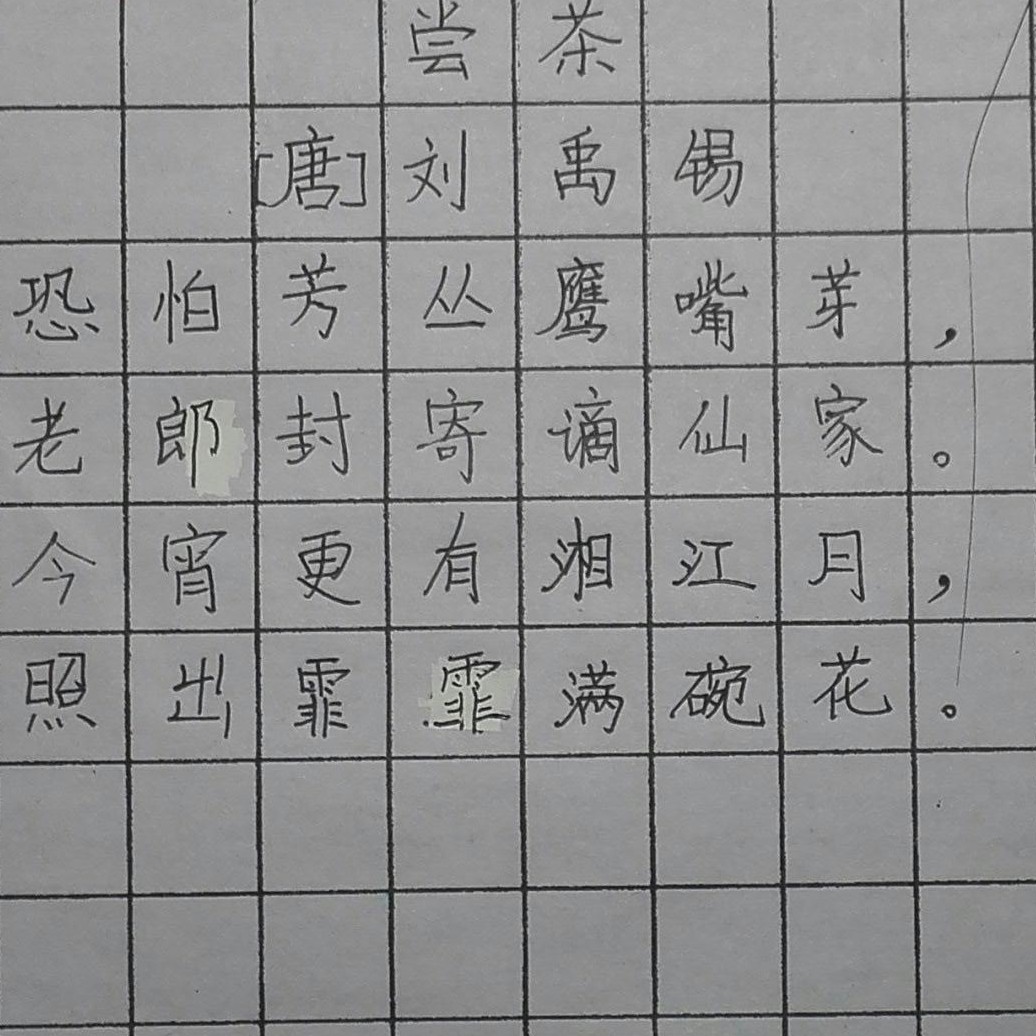 尝茶
[唐]刘禹锡
恐怕芳丛鹰嘴芽，
老郎封寄谪仙家。
今宵更有湘江月，
照出霏霏满碗花。